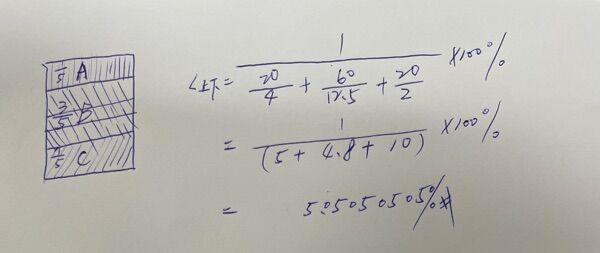 1/5 A
3/5 B
1/5 C
L上下 = 1 / (20/4 + 60/12.5 + 20/2) ×100%
= 1 / (5 + 4.8 + 10) ×100%
= 5.05050505%#